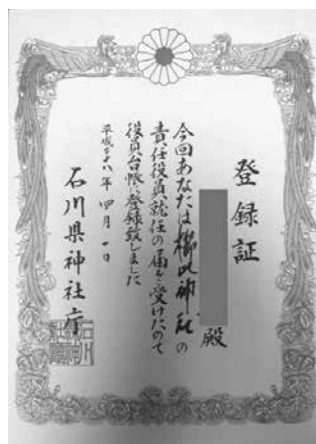 登録証
殿
今回あなたは櫛比神社の
責任役員就任の届を受けたので
役員台帳に登録致しました
平成二十八年四月一日
石川県神社庁